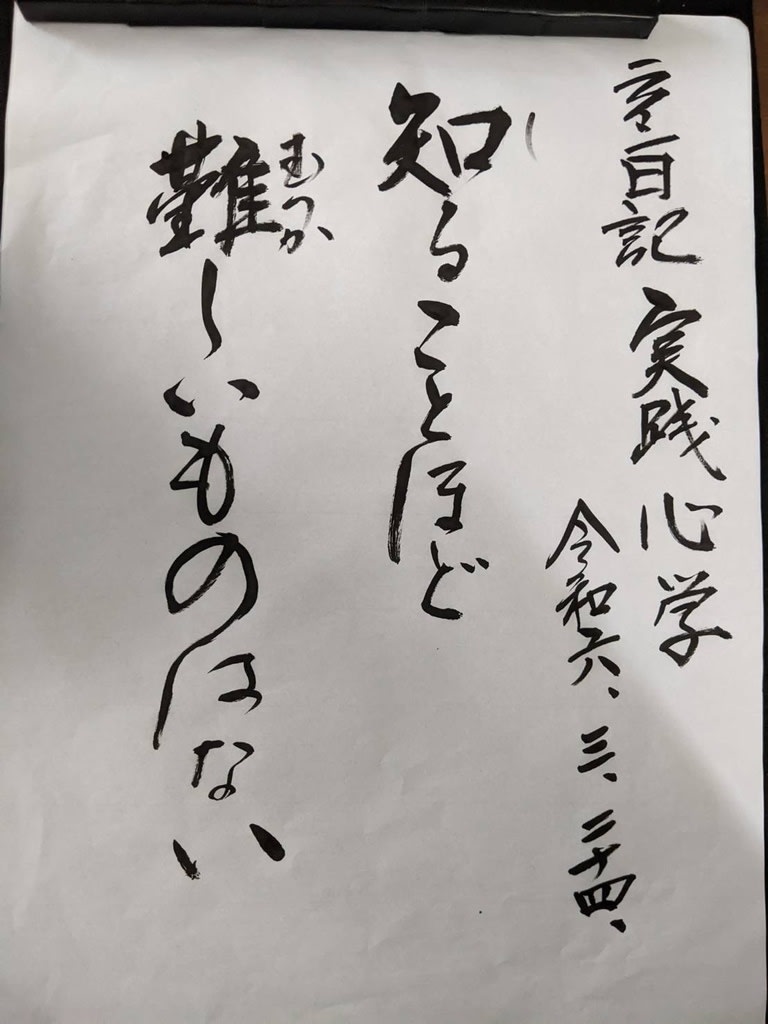 日記 実践心学
令和六、三、二十四、
し
知ることほど
むつか
難しいものはない